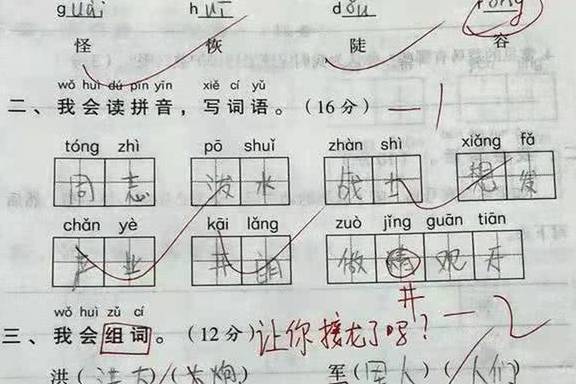 guài huī dǒu róng
怪 恢 陡 容
wǒ huì dú pīn yīn xiě cí yǔ
二、我会读拼音，写词语。(16分) -1
tóng zhì pō shuǐ zhàn shì xiǎng fǎ
同志 泼水 战士 想发
chǎn yè kāi lǎng zuò jǐng guān tiān
产业 开朗 做精观天
井
wǒ huì zǔ cí
三、我会组词。(12分) 让你接龙了吗？ -2
洪(洪大)(大炮) 军(军人)(人们)